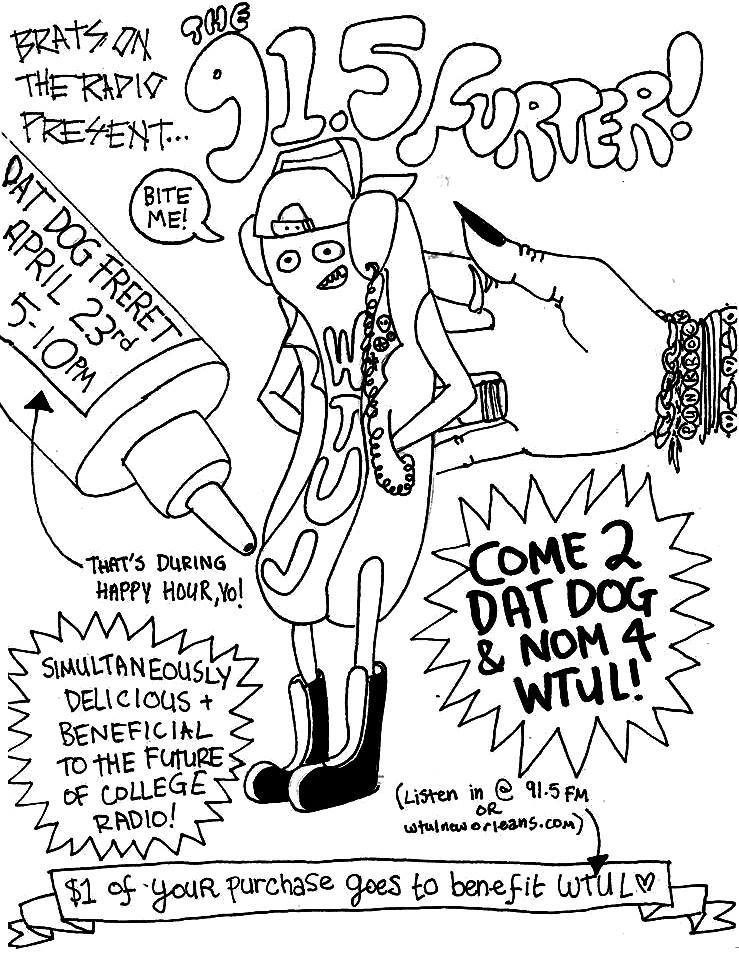 BRATS ON
THE RADIO
PRESENT...
THE
91.5 FURTER!
BITE
ME!
DAT DOG FRERET
APRIL 23rd
5-10PM
WTUL
PUNKROC
THAT'S DURING
HAPPY HOUR, YO!
COME 2
DAT DOG
& NOM 4
WTUL!
SIMULTANEOUSLY
DELICIOUS +
BENEFICIAL
TO THE FUTURE
OF COLLEGE
RADIO!
(Listen in @ 91.5 FM
OR
wtulneworleans.com)
$1 of your purchase goes to benefit WTUL♡